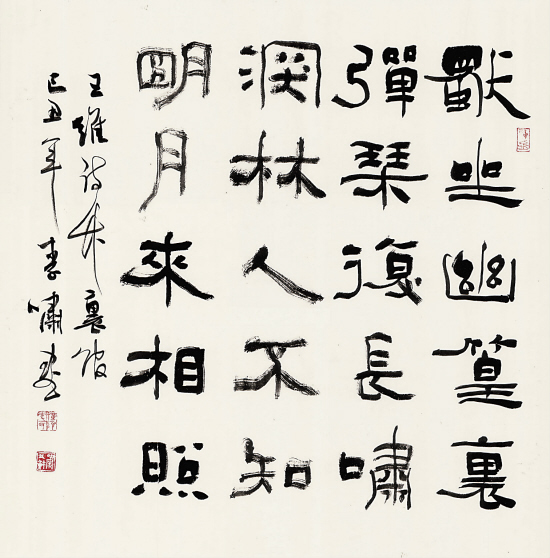 獨坐幽篁裏
彈琴復長嘯
深林人不知
明月來相照
王維詩竹裏館
己丑年李嘯書